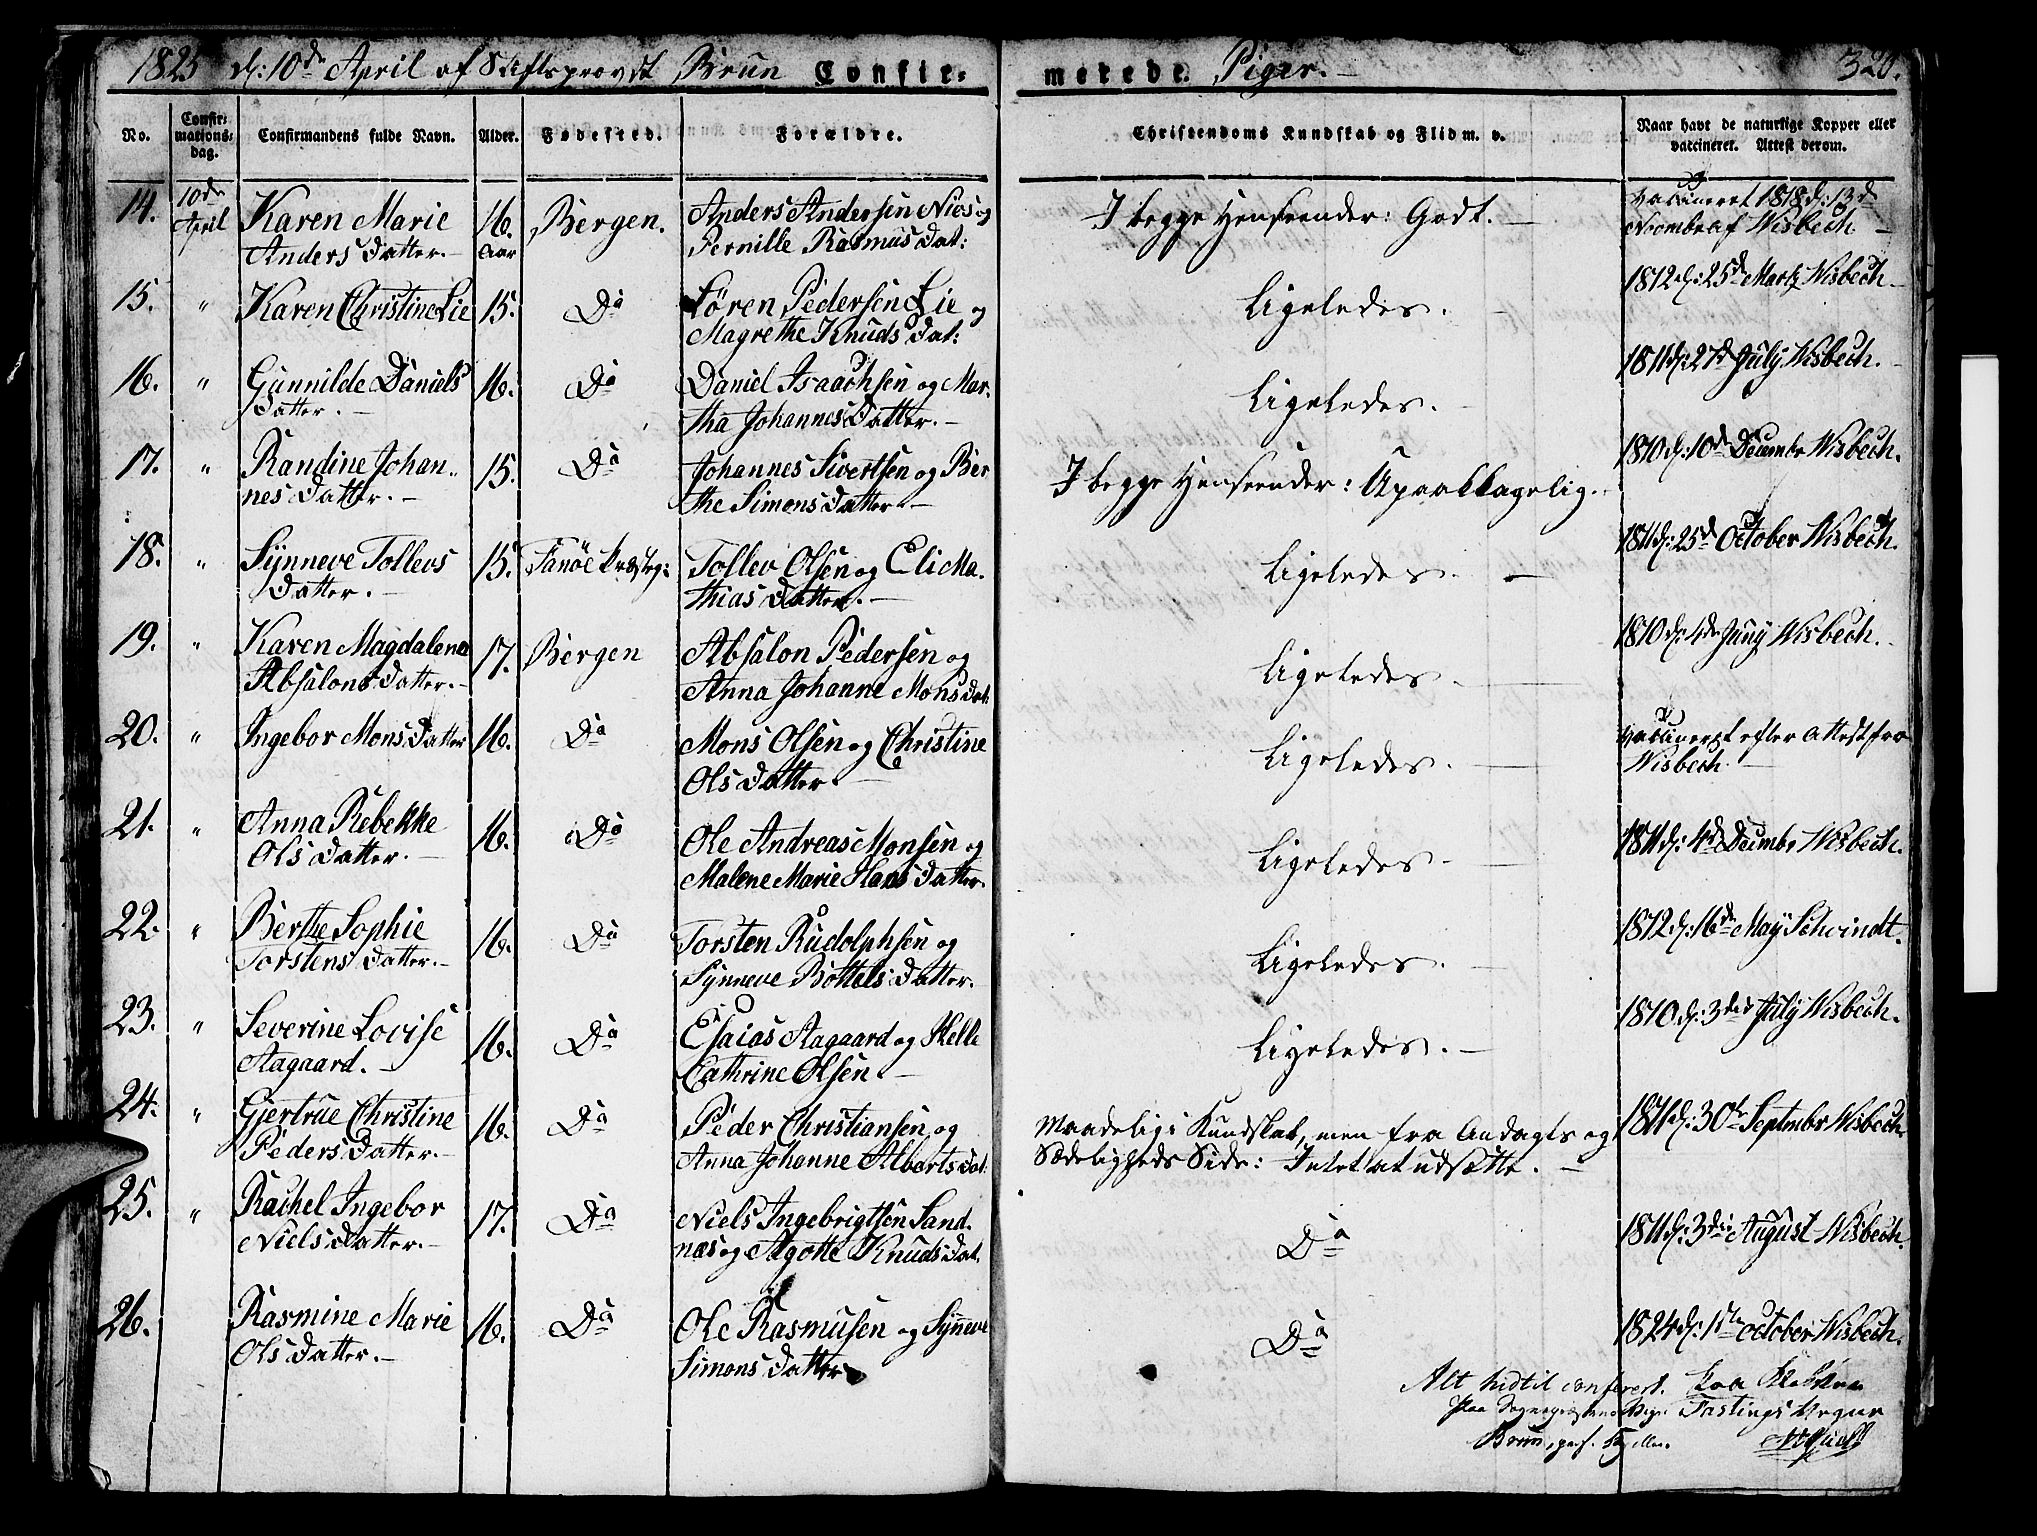 1825 d: 10de April af Stiftsprovst Brun Confir-
merede Piger.
320.
No.
Confir-
mations-
dag.
Confirmandens fulde Navn.
Alder.
Fødested.
Forældre.
Christendoms Kundskab og Flid m. v.
Naar havt de naturlige Kopper eller
vaccineret. Attest derom.
14. 10de
April
Karen Marie
Anders Datter.
16.
Aar
Bergen.
Anders Andersen Nies og
Pernille Rasmus Dat:
I begge Henseender: Godt.
vaccineret 1818 d: 13de
Novembr af Wisbech.
15. " Karen Christine Lie 15. Do
Sören Pedersen Lie og
Magrethe Knuds Dat:
Ligeledes.
1812 d: 25de Martz Wisbech.
16. " Gunnilde Daniels
Datter.
16. Do
Daniel Isaachsen og Mar-
tha Johannes Datter.
Ligeledes.
1811 d: 27de July Wisbech.
17. " Randine Johan-
nes Datter.
15. Do
Johannes Sivertsen og Ber
the Simons Datter.
I begge Henseender: Upaaklagelig.
1810 d: 10de Decembr Wisbech.
18. " Synneve Tollevs
Datter.
15. Fanöe Præsteg:
Tollev Olsen og Eli Ma-
thias Datter.
Ligeledes.
1811 d: 25de October Wisbech.
19. " Karen Magdalena
Absalons Datter.
17. Bergen
Absalon Pedersen og
Anna Johanne Mons Dat:
Ligeledes.
1810 d: 4de Juny Wisbech.
20. " Ingebor Mons Datter 16. Do
Mons Olsen og Christine
Ols Datter
Ligeledes.
vaccineret efter Attest fra
Wisbech.
21. " Anna Rebekke
Ols Datter.
16. Do
Ole Andreas Monsen og
Malene Marie Hans Datter.
Ligeledes.
1811 d: 4de Decembr Wisbech.
22. " Berthe Sophie
Torstens Datter.
16. Do
Torsten Rudolphsen og
Synneve Bottels Datter.
Ligeledes.
1812 d: 16de May Schvindt.
23. " Severine Lovise
Aagaard.
16. Do
Esaias Aagaard og Helle
Cathrine Olsen.
Ligeledes.
1810 d: 3die July Wisbech.
24. " Gjertrue Christine
Peders Datter.
16. Do
Peder Christiansen og
Anna Johanne Alberts Dat:
Maadelig i Kundskab, men fra Andagts og
Sædeligheds Side: Intet at udsætte.
1811 d: 30te Septembr Wisbech.
25. " Rachel Ingebor
Niels Datter.
17. Do
Niels Ingebrigtsen Sand-
næs og Agotte Knuds Dat.
Do
1811 d: 3die August Wisbech.
26. Rasmine Marie
Ols Datter.
16. Do
Ole Rasmusen og Synneve
Simons Datter
Do
1824 d: 1ste October Wisbech.
Alt hidtil confereret.
Brun